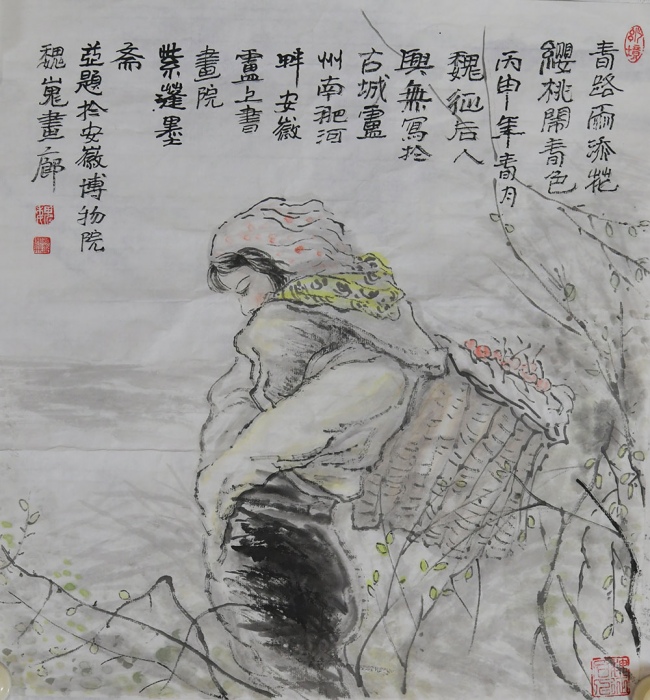 青路雨添花
纓桃鬧青色
丙申年春月
魏征后人
興無寫於
古城廬
州南淝河
畔安徽
廬上書
畫院
紫蓬墨
斋
並題於安徽博物院
魏嵬畫廊